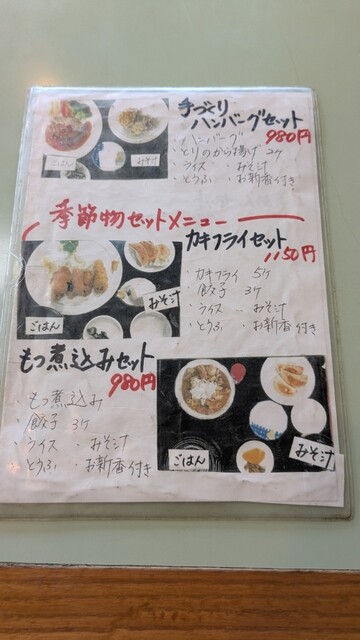 手づくり
ハンバーグセット
980円
・ハンバーグ
・とりのから揚げ 2ケ
・ライス ・みそ汁
・とうふ ・お新香付き
ごはん
みそ汁
季節物セットメニュー
カキフライセット
1150円
・カキフライ 5ケ
・餃子 3ケ
・ライス ・みそ汁
・とうふ ・お新香付き
ごはん
みそ汁
もつ煮込みセット
980円
・もつ煮込み
・餃子 3ケ
・ライス ・みそ汁
・とうふ ・お新香付き
ごはん
みそ汁